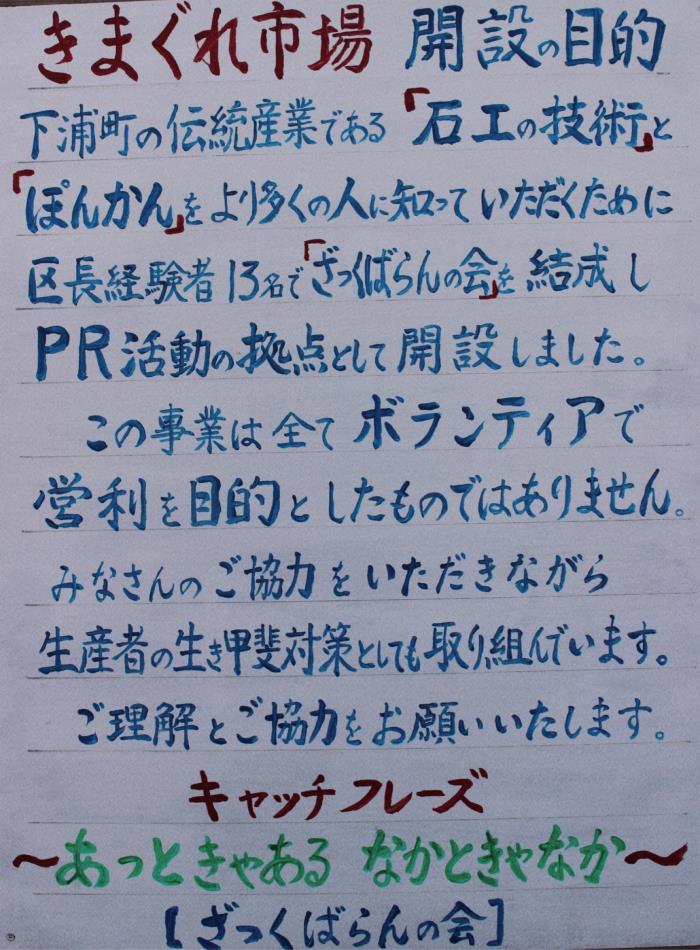 きまぐれ市場 開設の目的
下浦町の伝統産業である「石工の技術」と
「ぽんかん」をより多くの人に知っていただくために
区長経験者13名で「ざっくばらんの会」を結成し
PR活動の拠点として開設しました。
この事業は全てボランティアで
営利を目的としたものではありません。
みなさんのご協力をいただきながら
生産者の生き甲斐対策としても取り組んでいます。
ご理解とご協力をお願いいたします。
キャッチフレーズ
～あっときゃある なかときゃなか～
[ざっくばらんの会]